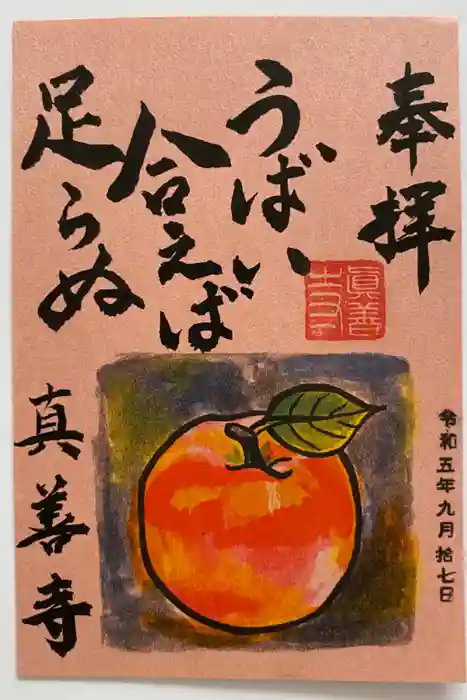 奉拝
うばい
合えば
足らぬ
真善寺
令和五年九月拾七日